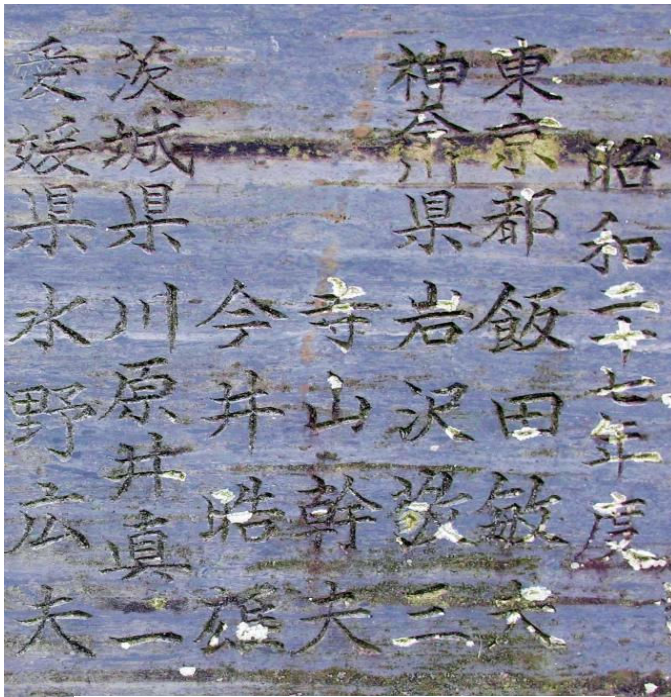 昭和二十七年度
東京都飯田敏夫
神奈川県岩沢宏二
寺山幹夫
今井皓雄
茨城県川原井真一
愛媛県水野広夫